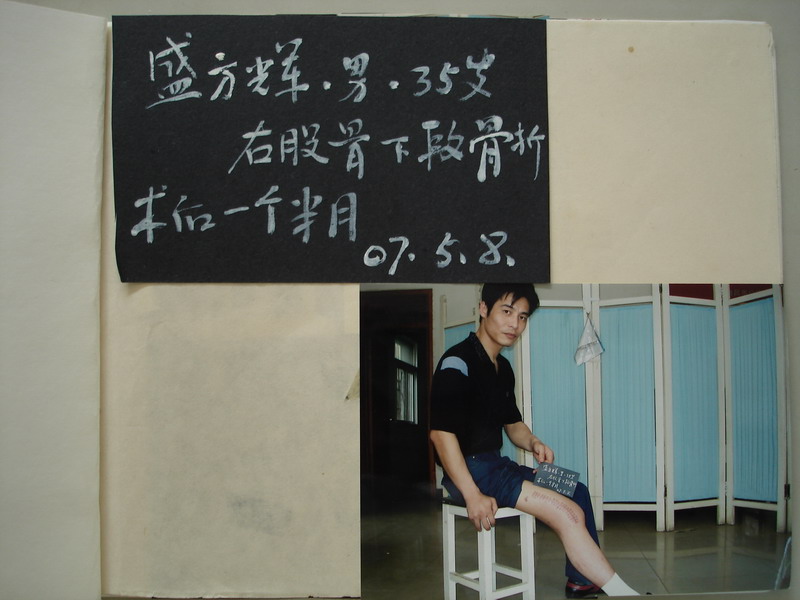 盛方辉·男·35岁
右股骨下段骨折
术后一个半月
07.5.8.